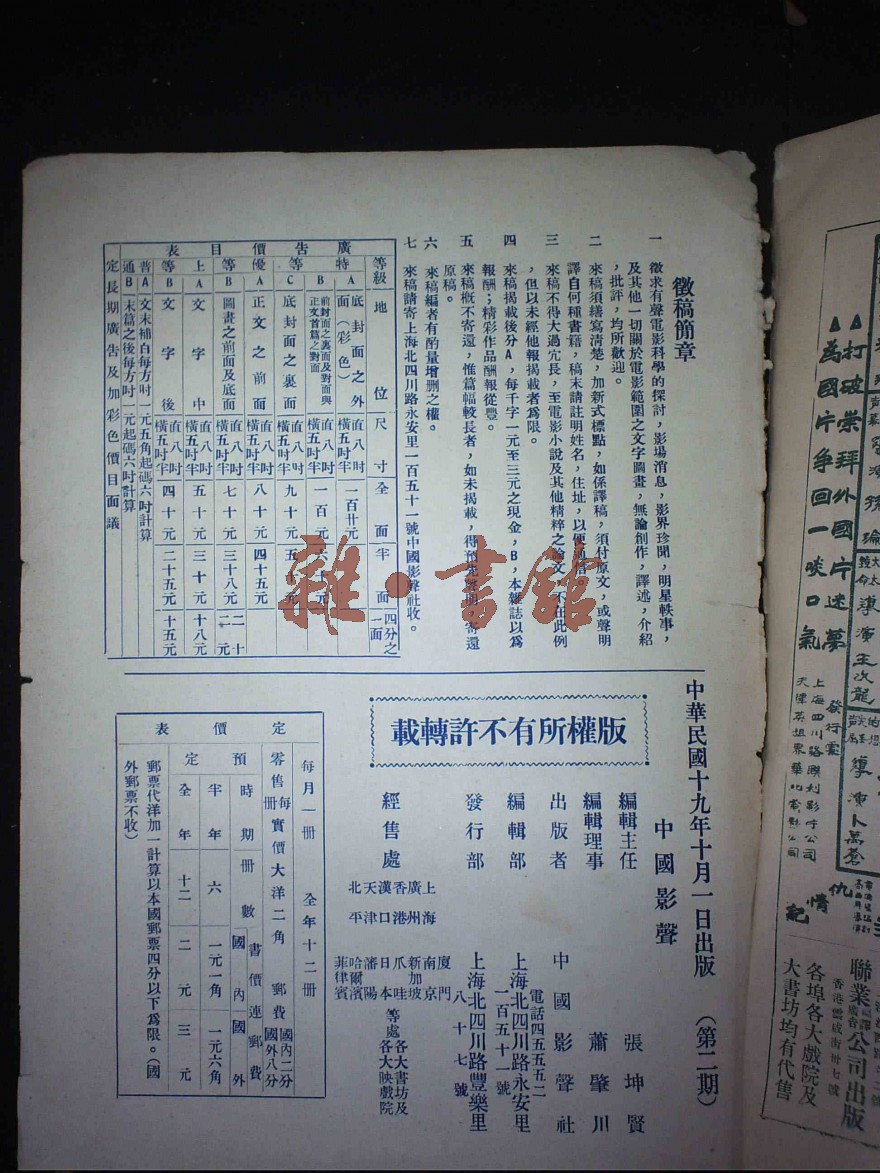 徵稿簡章
一 徵求有聲電影科學的探討，影場消息，影界珍聞，明星軼事，
及其他一切關於電影範圍之文字圖畫，無論創作，譯述，介紹
，批評，均所歡迎。
二 來稿須繕寫清楚，加新式標點，如係譯稿，須付原文，或聲明
譯自何種書籍，稿末請註明姓名，住址，以便通信。
三 來稿不得太過宂長，至電影小說及其他精粹之論文，不在此例
，但以未經他報揭載者為限。
四 來稿揭載後分A，每千字一元至三元之現金，B，本雜誌以為
報酬；精彩作品酬報從豐。
五 來稿概不寄還，惟篇幅較長者，如未揭載，得預先聲明，寄還
原稿。
六 來稿編者有酌量增删之權。
七 來稿請寄上海北四川路永安里一百五十一號中國影聲社收。
廣告價目表
等級 地位 尺寸 全面 半面 四分之一面
特等 A 底封面之外面（彩色） 直八吋橫五吋半 一百廿元
B 前封面之裏面及對面與正文首篇之對面 直八吋橫五吋半 一百元
C 底封面之裏面 直八吋橫五吋半 九十元
優等 A 正文之前面 直八吋橫五吋半 八十元 四十五元
B 圖畫之前面及底面 直八吋橫五吋半 七十元 三十八元 二十元
上等 A 文字中 直八吋橫五吋半 五十元 三十元 十八元
B 文字後 直八吋橫五吋半 四十元 二十五元 十五元
普通 A 文末補白每方吋一元五角起碼六吋計算
B 末篇之後每方吋一元起碼六吋計算
定長期廣告及加彩色價目面議
雜·書館
中華民國十九年十月一日出版 （第二期）
中國影聲
編輯主任 張坤賢
編輯理事 蕭肇川
出版者 中國影聲社
電話四五五五二
編輯部 上海北四川路永安里
一百五十一號
發行部 上海北四川路豐樂里
八十七號
經售處
上海 廣州 香港 漢口 天津 北平
廈門 南京 新加坡 爪哇 日本 瀋陽 哈爾濱 菲律賓
等處各大書坊及各大映戲院
版權所有不許轉載
定價表
每月一冊 全年十二冊
零售每冊實價大洋二角 郵費國內二分國外八分
預定 時期 冊數 書價連郵費 國內 國外
半年 六 一元一角 一元六角
全年 十二 二元 三元
郵票代洋加一計算以本國郵票四分以下為限。（國
外郵票不收）
▲打破崇拜外國片迷夢
▲為國片爭回一啖口氣
上海四川路聯利影片公司
導演王次龍
導演卜萬蒼
情仇記
聯業廣告公司出版
香港雲咸街卅七號
各埠各大戲院及
大書坊均有代售